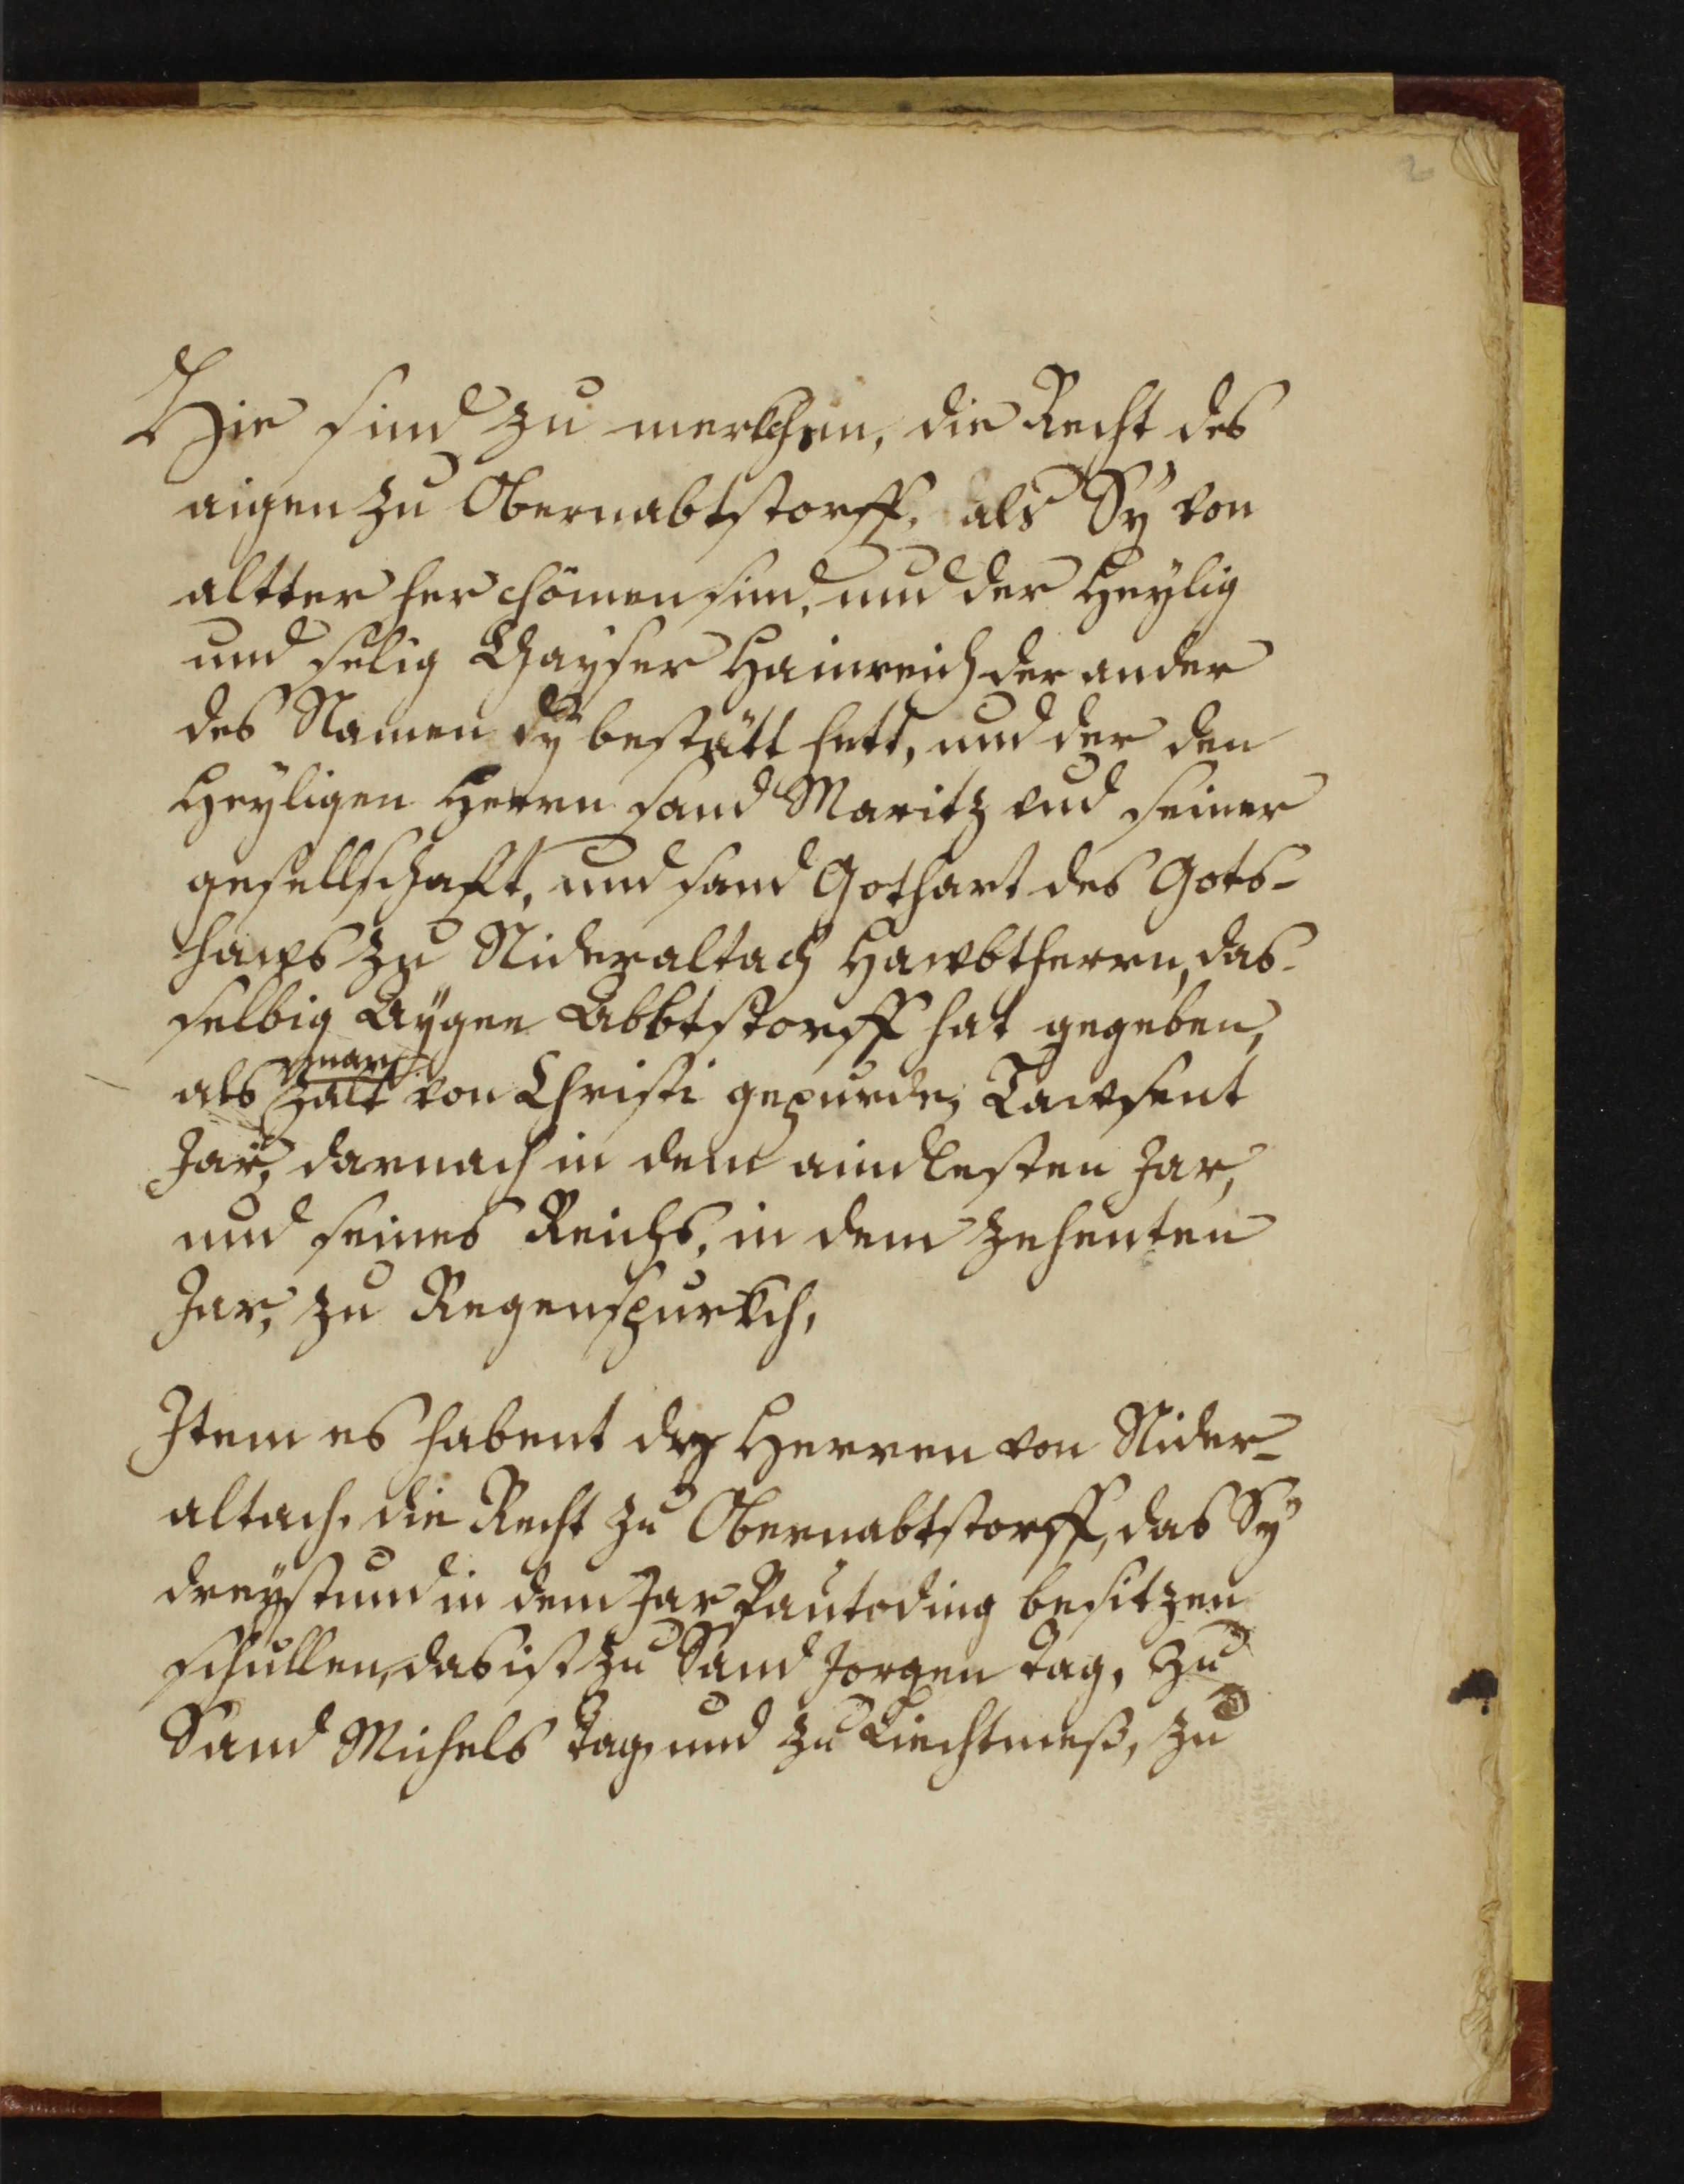 2
Hie sind zu merkhen, die Recht des
aigen zu Obernabtstorff, als Sÿ von
altter her chömen sind, und der Heÿlig
und selig Chayser Hainreich der ander
des Namen dÿ bestätt hett, und der den
Heÿligen Herrn sand Maritz und seiner
gesellschaft, und sand Gothart des Gots-
hawss zu Nideraltach Hawbtherrn, das-
selbig Aÿgen Abbtstorff hat gegeben,
als man
zalt von Christi gepurde, Tawsent
Jar, darnach in dem aindlesten Jar,
und seines Reichs, in dem zehenten
Jar, zu Regenspurkch,
Item es habent dÿ Herren von Nider-
altach, die Recht zu Obernabtstorff, das Sÿ
dreystund in dem Jar Pautoding besitzen
schullen, das ist zu Sand Jorgen tag, zu
Sand Michels tag und zu Liechtmeß, zu